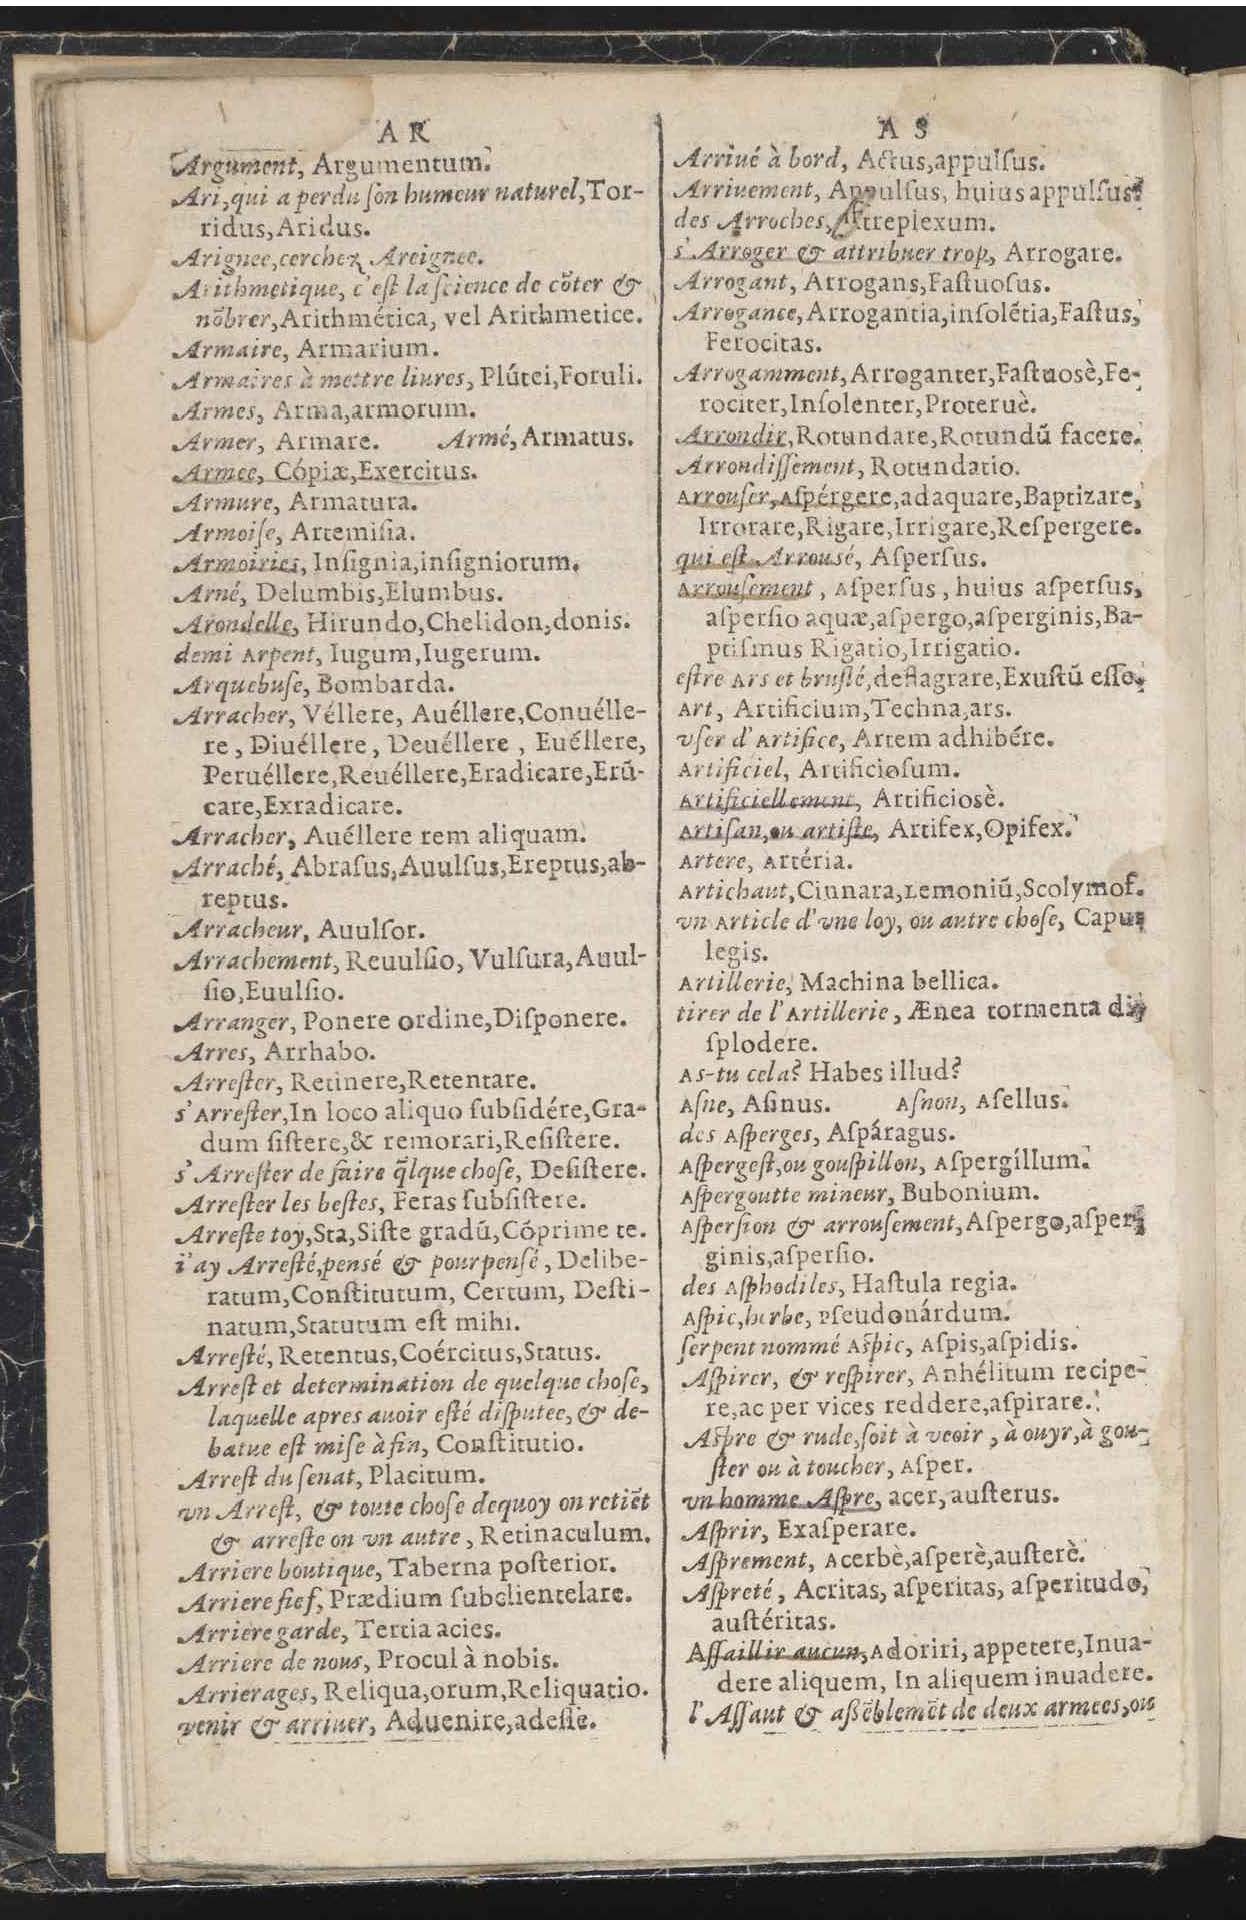 AR
Argument, Argumentum.
Ari, qui a perdu ſon humeur naturel, Tor-
ridus, Aridus.
Arignee, cerchez Areignee.
Arithmetique, c'eſt la ſcience de cõter &
nõbrer, Arithmética, vel Arithmetice.
Armaire, Armarium.
Armaires à mettre liures, Plútei, Foruli.
Armes, Arma, armorum.
Armer, Armare. Armé, Armatus.
Armee, Cópiæ, Exercitus.
Armure, Armatura.
Armoiſe, Artemiſia.
Armoiries, Inſignia, inſigniorum.
Arné, Delumbis, Elumbus.
Arondelle, Hirundo, Chelidon, donis.
demi Arpent, Iugum, Iugerum.
Arquebuſe, Bombarda.
Arracher, Véllere, Auéllere, Conuélle-
re, Diuéllere, Deuéllere, Euéllere,
Peruéllere, Reuéllere, Eradicare, Erũ-
care, Exradicare.
Arracher, Auéllere rem aliquam.
Arraché, Abraſus, Auulſus, Ereptus, ab-
reptus.
Arracheur, Auulſor.
Arrachement, Reuulſio, Vulſura, Auul-
ſio, Euulſio.
Arranger, Ponere ordine, Diſponere.
Arres, Arrhabo.
Arreſter, Retinere, Retentare.
s'Arreſter, In loco aliquo ſubſidére, Gra-
dum ſiſtere, & remorari, Reſiſtere.
s'Arreſter de faire q̃lque choſe, Deſiſtere.
Arreſter les beſtes, Feras ſubſiſtere.
Arreſte toy, Sta, Siſte gradũ, Cóprime te.
i'ay Arreſté, penſé & pourpenſé, Delibe-
ratum, Conſtitutum, Certum, Deſti-
natum, Statutum eſt mihi.
Arreſté, Retentus, Coércitus, Status.
Arreſt et determination de quelque choſe,
laquelle apres auoir eſté diſputee, & de-
batue eſt miſe à fin, Conſtitutio.
Arreſt du ſenat, Placitum.
vn Arreſt, & toute choſe dequoy on retiẽt
& arreſte on vn autre, Retinaculum.
Arriere boutique, Taberna poſterior.
Arriere fief, Prædium ſubclientelare.
Arriere garde, Tertia acies.
Arriere de nous, Procul à nobis.
Arrierages, Reliqua, orum, Reliquatio.
venir & arriuer, Aduenire, adeſſe.
AS
Arriué à bord, Actus, appulſus.
Arriuement, Appulſus, huius appulſus.
des Arroches, Attreplexum.
s'Arroger & attribuer trop, Arrogare.
Arrogant, Arrogans, Faſtuoſus.
Arrogance, Arrogantia, inſolẽtia, Faſtus,
Ferocitas.
Arrogamment, Arroganter, Faſtuosè, Fe-
rociter, Inſolenter, Proteruè.
Arrondir, Rotundare, Rotundũ facere.
Arrondiſſement, Rotundatio.
Arrouſer, Aſpérgere, adaquare, Baptizare,
Irrorare, Rigare, Irrigare, Reſpergere.
qui eſt Arrousé, Aſperſus.
Arrouſement, Aſperſus, huius aſperſus,
aſperſio aquæ, aſpergo, aſperginis, Ba-
ptiſmus Rigatio, Irrigatio.
eſtre Ars et bruſlé, deflagrare, Exuſtũ eſſe.
Art, Artificium, Techna, ars.
vſer d'Artifice, Artem adhibére.
Artificiel, Artificioſum.
Artificiellement, Artificiosè.
Artiſan, ou artiſte, Artifex, Opifex.
Artere, Artéria.
Artichaut, Cinnara, Lemoniũ, Scolymoſ.
vn Article d'vne loy, ou autre choſe, Caput
legis.
Artillerie, Machina bellica.
tirer de l'Artillerie, Ænea tormenta di-
ſplodere.
As-tu cela? Habes illud?
Aſne, Aſinus. Aſnon, Aſellus.
des Aſperges, Aſpáragus.
Aſpergeſt, ou gouſpillon, Aſpergíllum.
Aſpergoutte mineur, Bubonium.
Aſperſion & arrouſement, Aſpergo, aſper-
ginis, aſperſio.
des Aſphodiles, Haſtula regia.
Aſpic, herbe, Pſeudonárdum.
ſerpent nommé Aſpic, Aſpis, aſpidis.
Aſpirer, & reſpirer, Anhélitum recipe-
re, ac per vices reddere, aſpirare.
Aſpre & rude, ſoit à veoir, à ouyr, à gou-
ſter ou à toucher, Aſper.
vn homme Aſpre, acer, auſterus.
Aſprir, Exaſperare.
Aſprement, Acerbè, aſperè, auſterè.
Aſpreté, Acritas, aſperitas, aſperitudo,
auſtéritas.
Aſſaillir aucun, Adoriri, appetere, Inua-
dere aliquem, In aliquem inuadere.
l'Aſſaut & aſsẽblemẽt de deux armees, ou